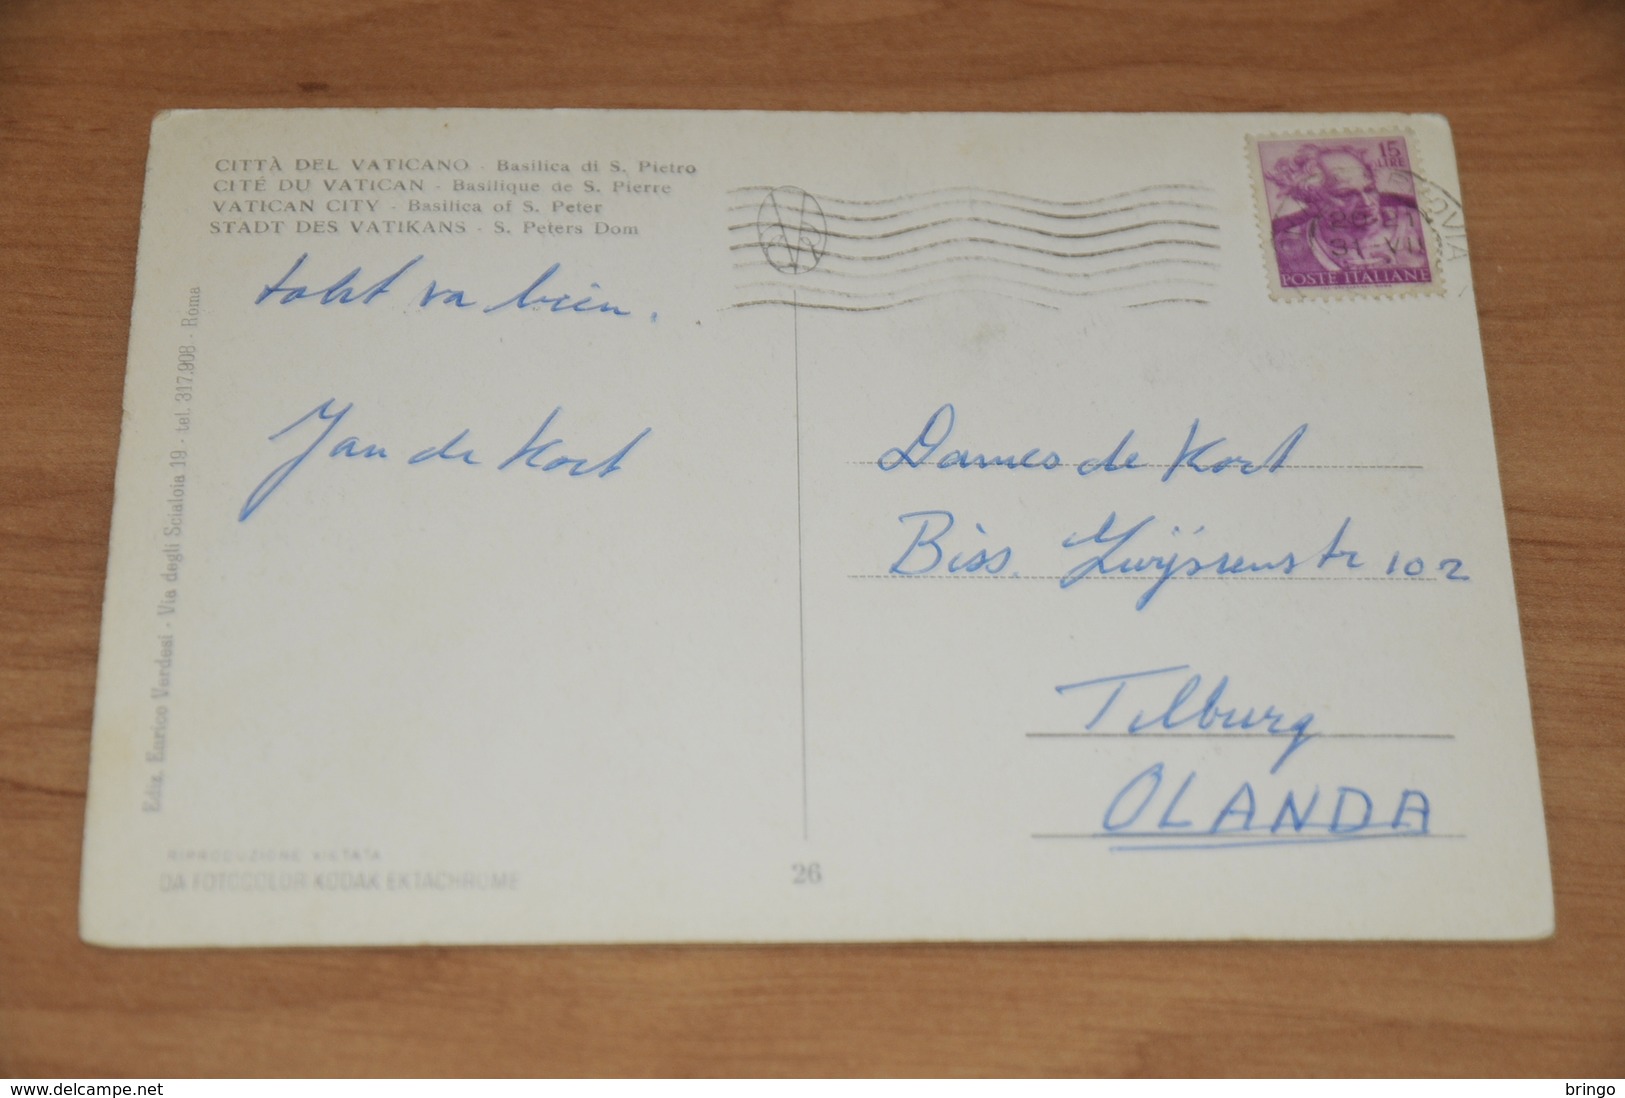 CITTÀ DEL VATICANO - Basilica di S. Pietro
CITÉ DU VATICAN - Basilique de S. Pierre
VATICAN CITY - Basilica of S. Peter
STADT DES VATIKANS - S. Peters Dom
va bien.
Jan de Kort
Ediz. Enrico Verdesi - Via degli Scialoia 19 - tel. 317.908 - Roma
RIPRODUZIONE VIETATA
DA FOTOCOLOR KODAK EKTACHROME
26
15
LIRE
POSTE ITALIANE
Dames de Kort
Biss. Zwijsenstr 102
Tilburg
OLANDA
www.delcampe.net
bringo